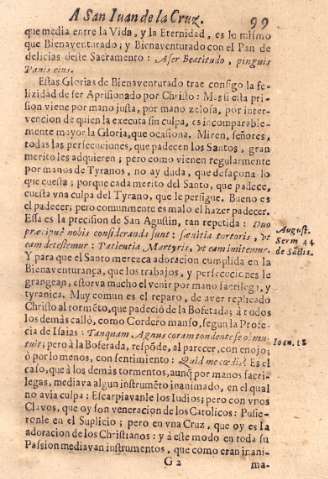 A San Iuan de la Cruz. 99
que media entre la Vida, y la Eternidad, es lo mismo
que Bienaventurado; y Bienaventurado con el Pan de
delicias deste Sacramento: Aser Beatitudo, pinguis
Panis eius.
Estas Glorias de Bienaventurado trae consigo la fe-
lizidad de ser Aprisionado por Christo: Mas si esta pri-
sion viene por mano justa, por mano zelosa, por inter-
vencion de quien la executa sin culpa, es incomparable-
mente mayor la Gloria, que ocasiona. Miren, señores,
todas las persecuciones, que padecen los Santos, gran
merito les adquieren; pero como vienen regularmente
por manos de Tyranos, no ay duda, que desaçona lo
que cuesta; porque cada merito del Santo, que padece,
cuesta vna culpa del Tyrano, que le persigue. Bueno es
el padecer; pero comunmente es malo el hazer padecer.
Essa es la precision de San Agustin, tan repetida: Duo
præcipuè nobis consideranda sunt: sævitia tortoris, vt
eam detestemur: Patientia Martyris, vt eam imitemur.
August.
Serm 44
de Sactis.
Y para que el Santo merezca adoracion cumplida en la
Bienaventurança, que los trabajos, y persecuciones le
grangean, estorva mucho el venir por mano sacrilega, y
tyranica. Muy comun es el reparo, de aver replicado
Christo al tormẽto, que padeciò de la Bofetada; à todos
los demás callò, como Cordero manso, segun la Profe-
cia de Isaias: Tanquam Agnus coram tondente se obmu-
tuit; pero à la Bofetada, respõde, al parecer, con enojo;
ò por lo menos, con sentimiento: Quid me cædis? Es el
Ioan. 18
caso, que à los demás tormentos, aunq̃ por manos sacri-
legas, mediava algun instrumẽto inanimado, en el qual
no avia culpa: Escarpiavanle los Iudios; pero con vnos
Clavos, que oy son veneracion de los Catolicos: Pusie-
ronle en el Suplicio; pero en vna Cruz, que oy es la
adoracion de los Christianos: y à este modo en toda su
Passion mediavan instrumentos, que como eran inani-
G 2 ma-